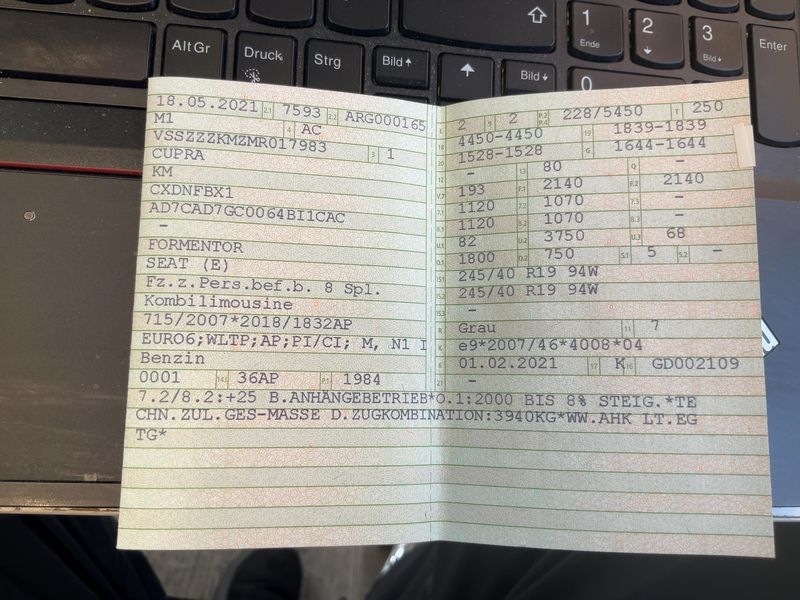 AltGr
Druck
Strg
Bild
Bild
1
Ende
2
3
Bild
0
Enter
18.05.2021 2.1 7593 2.2 ARG000165
M1 4 AC
VSSZZZKMZMR017983
CUPRA 3 1
KM
CXDNFBX1
AD7CAD7GC0064BI1CAC
–
FORMENTOR
SEAT (E)
Fz.z.Pers.bef.b. 8 Spl.
Kombilimousine
715/2007*2018/1832AP
EURO6;WLTP;AP;PI/CI; M, N1 I
Benzin
0001 14.1 36AP P.1 1984
L 2 9 2 P.2 P.4 228/5450 T 250
18 4450-4450 19 1839-1839
20 1528-1528 G 1644-1644
12 – 13 80 Q –
V.7 193 F.1 2140 F.2 2140
7.1 1120 7.2 1070 7.3 –
8.1 1120 8.2 1070 8.3 –
U.1 82 U.2 3750 U.3 68
O.1 1800 O.2 750 S.1 5 S.2 –
15.1 245/40 R19 94W
15.2 245/40 R19 94W
15.3 –
R Grau 11 7
K e9*2007/46*4008*04
6 01.02.2021 17 K 16 GD002109
21 –
7.2/8.2:+25 B.ANHÄNGEBETRIEB*O.1:2000 BIS 8% STEIG.*TE
CHN.ZUL.GES-MASSE D.ZUGKOMBINATION:3940KG*WW.AHK LT.EG
TG*